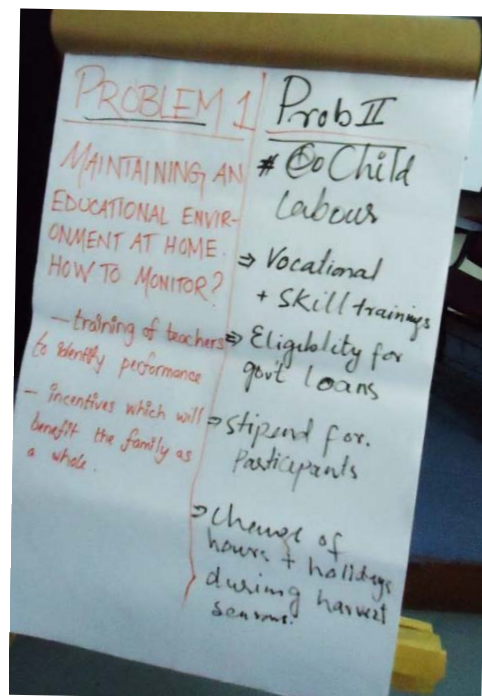 PROBLEM 1
MAINTAINING AN
EDUCATIONAL ENVIR-
ONMENT AT HOME.
HOW TO MONITOR?
- training of teachers
to identify performance
- incentives which will
benefit the family as
a whole.
Prob II
# Child
Labour
⇒ Vocational
+ Skill trainings
⇒ Eligiblity for
gov't loans
⇒ Stipend for.
Participants
⇒ Change of
hours + holidays
during harvest
seasons.